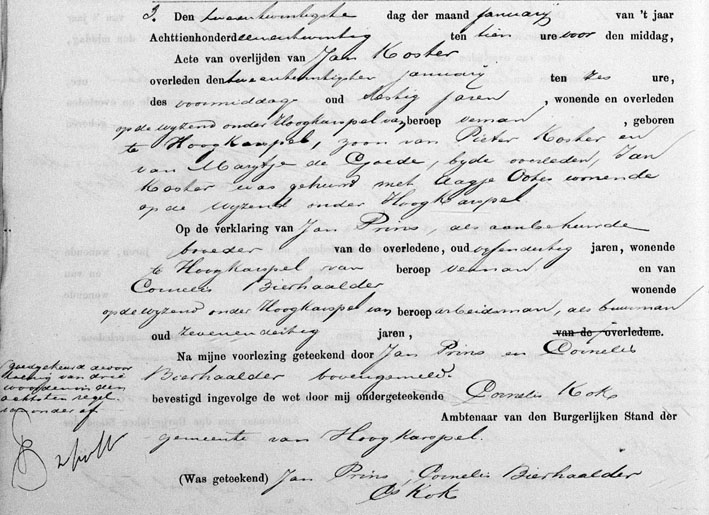 3. Den tweeentwintigste dag der maand januarij van 't jaar
Achttienhonderd eenentwintig ten tien ure voor den middag,
Acte van overlijden van Jan Koster
overleden den tweeentwintigsten januarij ten zes ure,
des voormiddags oud sestig jaren, wonende en overleden
op de wyzend onder Hoogkarspel van beroep veeman, geboren
te Hoogkarspel, zoon van Pieter Koster en
van Marytje de Goede, byde overleden, Jan
Koster was gehuwd met Aagje Ootes wonende
op de wyzend onder Hoogkarspel
Op de verklaring van Jan Prins, als aanbehuwde
broeder van de overledene, oud vyfendertig jaren, wonende
te Hoogkarspel van beroep veeman en van
Cornelis Bierhaalder wonende
op de wyzend onder Hoogkarspel van beroep arbeidsman, als buurman
oud zevenendertig jaren, van de overledene.
Na mijne voorlezing geteekend door Jan Prins en Cornelis
Bierhaalder bovengemeld.
bevestigd ingevolge de wet door mij ondergeteekende Cornelis Kok
Ambtenaar van den Burgerlijken Stand der
gemeente van Hoogkarspel.
(Was geteekend) Jan Prins, Cornelis Bierhaalder
Cs Kok
goedgekeurd de door
haling van drie
woorden in den
achtsten regel
van onder af